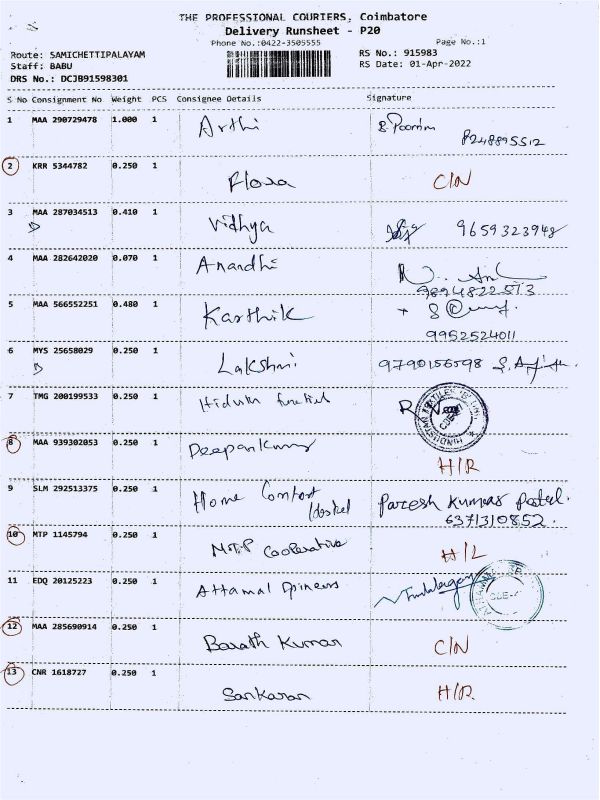 THE PROFESSIONAL COURIERS, Coimbatore
Delivery Runsheet - P20
Phone No.:0422-3505555 Page No.:1
Route: SAMICHETTIPALAYAM RS No.: 915983
Staff: BABU RS Date: 01-Apr-2022
DRS No.: DCJB91598301
S No Consignment No Weight PCS Consignee Details Signature
1 MAA 290729478 1.000 1 Arthi
8248895512
2 KRR 5344782 0.250 1
Flora C/N
3 MAA 287034513 0.410 1 Vidhya 9659323948
4 MAA 282642020 0.070 1 Anandhi
9894822513
5 MAA 566552251 0.480 1 Karthik
9952524011
6 MYS 25658029 0.250 1 Lakshmi 9790156598
7 TMG 200199533 0.250 1
8 MAA 939302053 0.250 1 Deepan Kumar
H/R
9 SLM 292513375 0.250 1 Home Comfort Paresh Kumar Patel.
Hostel 6371310852.
10 MTP 1145794 0.250 1
M.T.P Cooperative H/L
11 EDQ 20125223 0.250 1
12 MAA 285690914 0.250 1
Barath Kumar C/N
13 CNR 1618727 0.250 1
Sankaran H/R